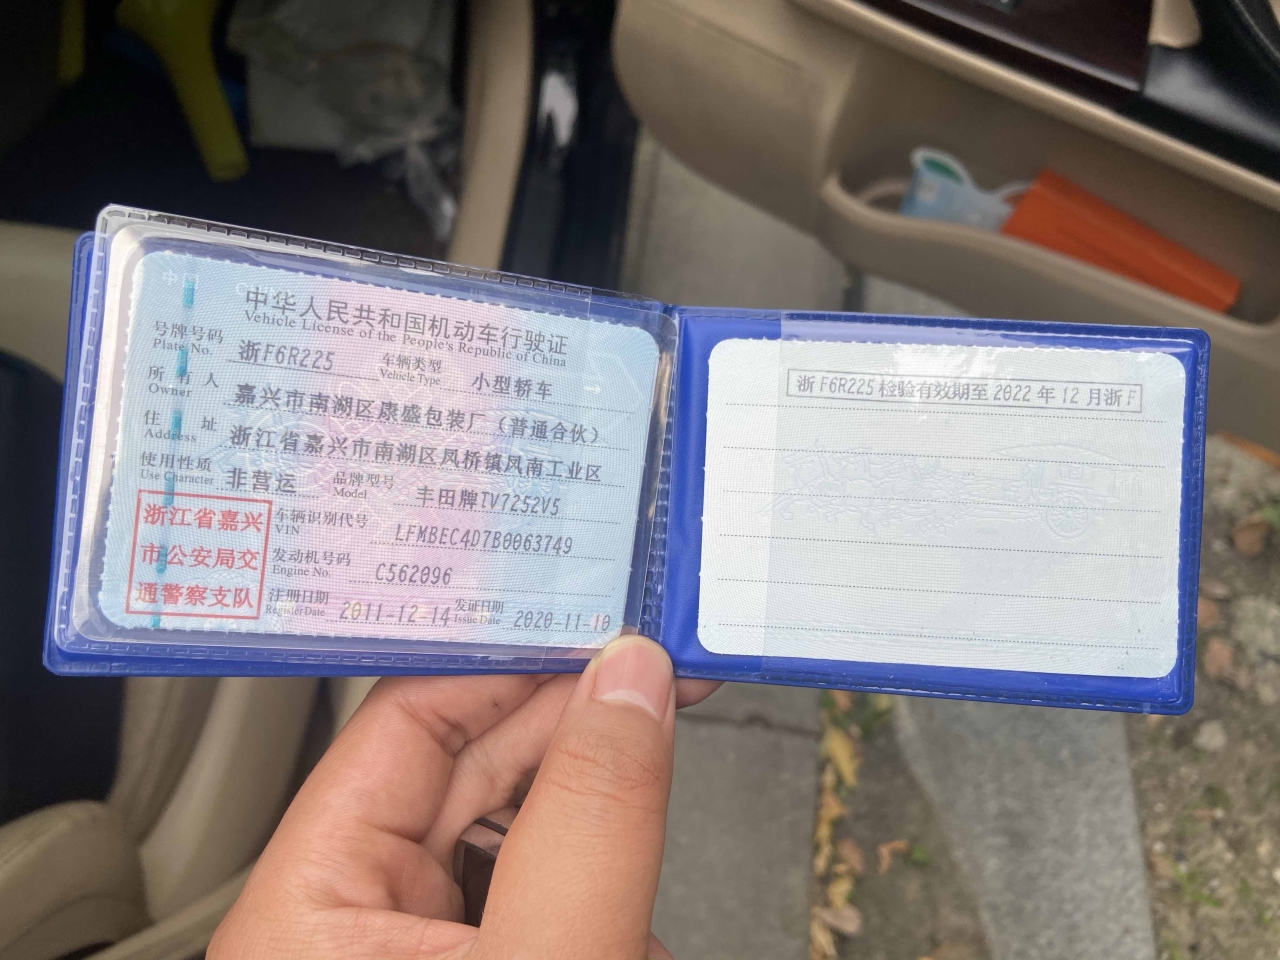 中华人民共和国机动车行驶证
Vehicle License of the People's Republic of China
号牌号码 浙F6R225 车辆类型 小型轿车
Plate No. Vehicle Type
所有人 嘉兴市南湖区康盛包装厂（普通合伙）
Owner
住址 浙江省嘉兴市南湖区凤桥镇凤南工业区
Address
使用性质 非营运 品牌型号 丰田牌TV7252V5
Use Character Model
浙江省嘉兴
市公安局交
通警察支队
车辆识别代号 LFMBEC4D7B0063749
VIN
发动机号码 C562096
Engine No.
注册日期 2011-12-14 发证日期 2020-11-10
Register Date Issue Date
浙F6R225检验有效期至2022年12月浙F